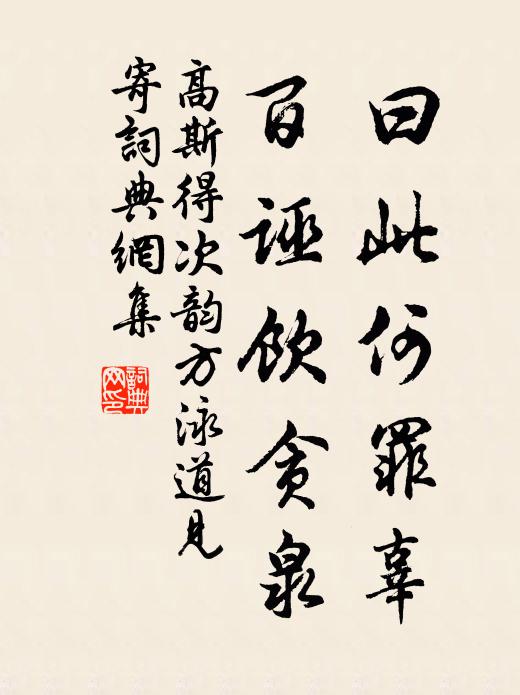 曰此何罪辜
百誣飲貪泉
高斯得次韵方泳道見
寄詞典網集
詞典网印